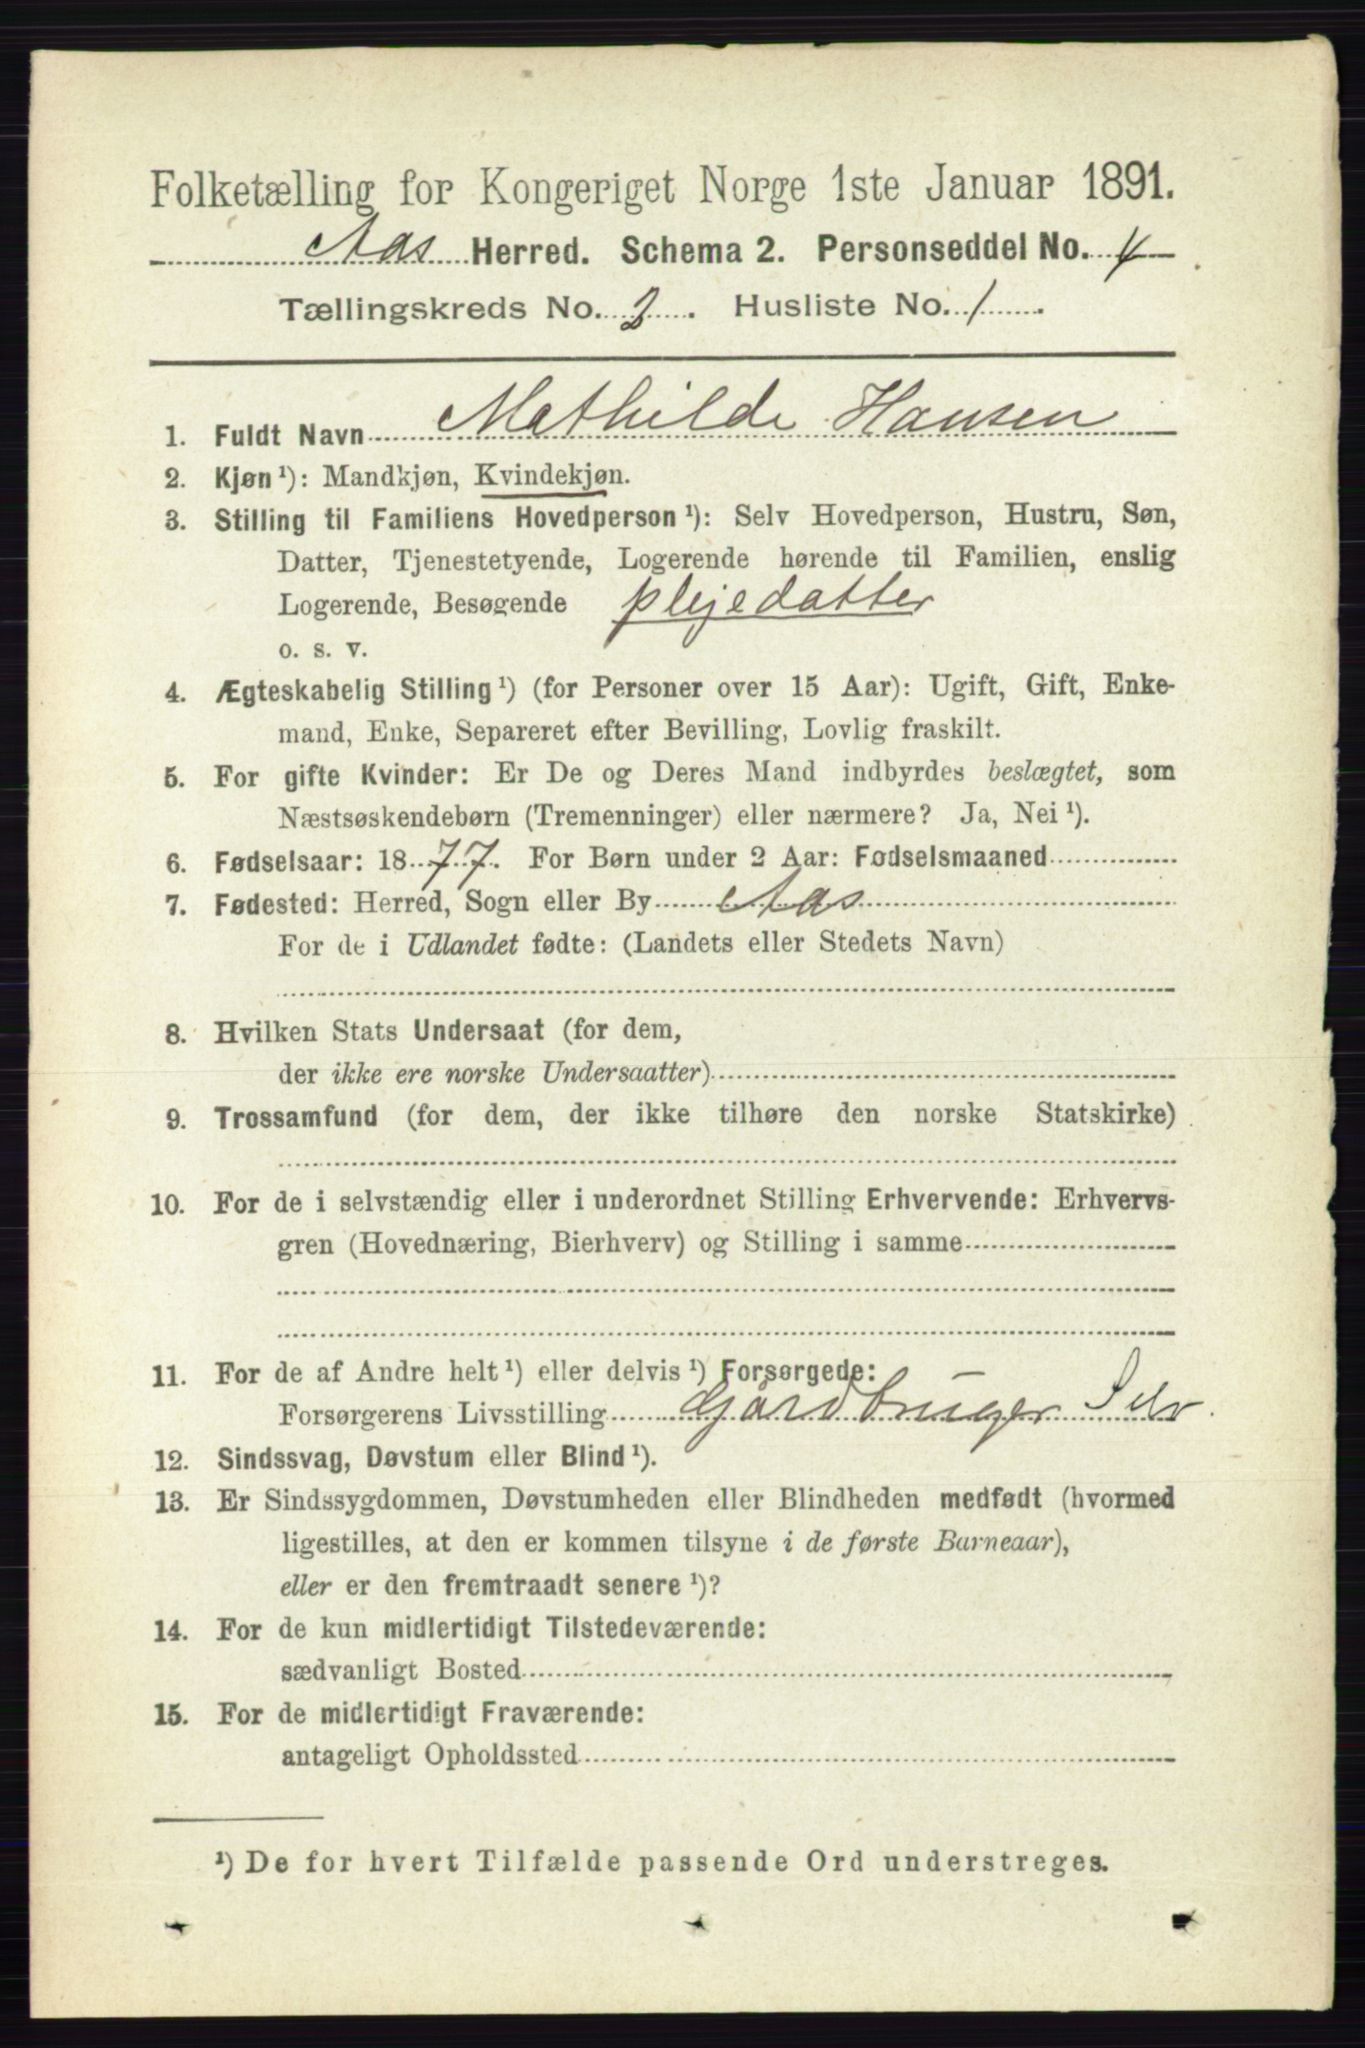 Folketælling for Kongeriget Norge 1ste Januar 1891.
Aas Herred. Schema 2. Personseddel No. 4
Tællingskreds No. 2. Husliste No. 1.
1. Fuldt Navn Mathilde Hansen
2. Kjøn¹): Mandkjøn, Kvindekjøn.
3. Stilling til Familiens Hovedperson¹): Selv Hovedperson, Hustru, Søn,
Datter, Tjenestetyende, Logerende hørende til Familien, enslig
Logerende, Besøgende plejedatter
o. s. v.
4. Ægteskabelig Stilling¹) (for Personer over 15 Aar): Ugift, Gift, Enke-
mand, Enke, Separeret efter Bevilling, Lovlig fraskilt.
5. For gifte Kvinder: Er De og Deres Mand indbyrdes beslægtet, som
Næstsøskendebørn (Tremenninger) eller nærmere? Ja, Nei¹).
6. Fødselsaar: 1877. For Børn under 2 Aar: Fødselsmaaned
7. Fødested: Herred, Sogn eller By Aas
For de i Udlandet fødte: (Landets eller Stedets Navn)
8. Hvilken Stats Undersaat (for dem,
der ikke ere norske Undersaatter)
9. Trossamfund (for dem, der ikke tilhøre den norske Statskirke)
10. For de i selvstændig eller i underordnet Stilling Erhvervende: Erhvervs-
gren (Hovednæring, Bierhverv) og Stilling i samme
11. For de af Andre helt¹) eller delvis¹) Forsørgede:
Forsørgerens Livsstilling Gårdbruger Selv
12. Sindssvag, Døvstum eller Blind¹).
13. Er Sindssygdommen, Døvstumheden eller Blindheden medfødt (hvormed
ligestilles, at den er kommen tilsyne i de første Barneaar),
eller er den fremtraadt senere¹)?
14. For de kun midlertidigt Tilstedeværende:
sædvanligt Bosted
15. For de midlertidigt Fraværende:
antageligt Opholdssted
¹) De for hvert Tilfælde passende Ord understreges.